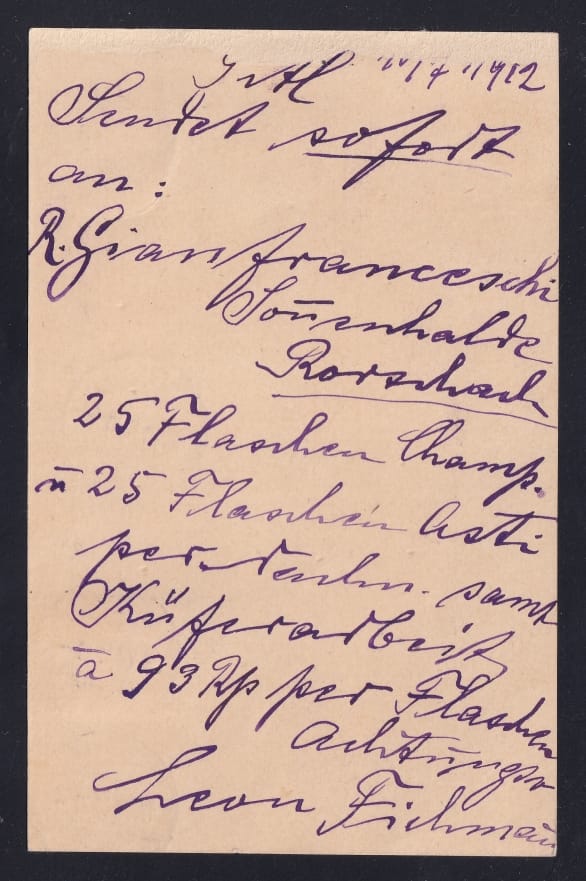 11/4 1912
Sendet sofort
an:
R. Gianfranceschi
Son̄enhalde
Rorschach
25 Flaschen Champ.
ū 25 Flaschen Asti
per samt
Küferarbeit
à 93 Rp per Flaschen
Achtungsv
Leon Fichman̄